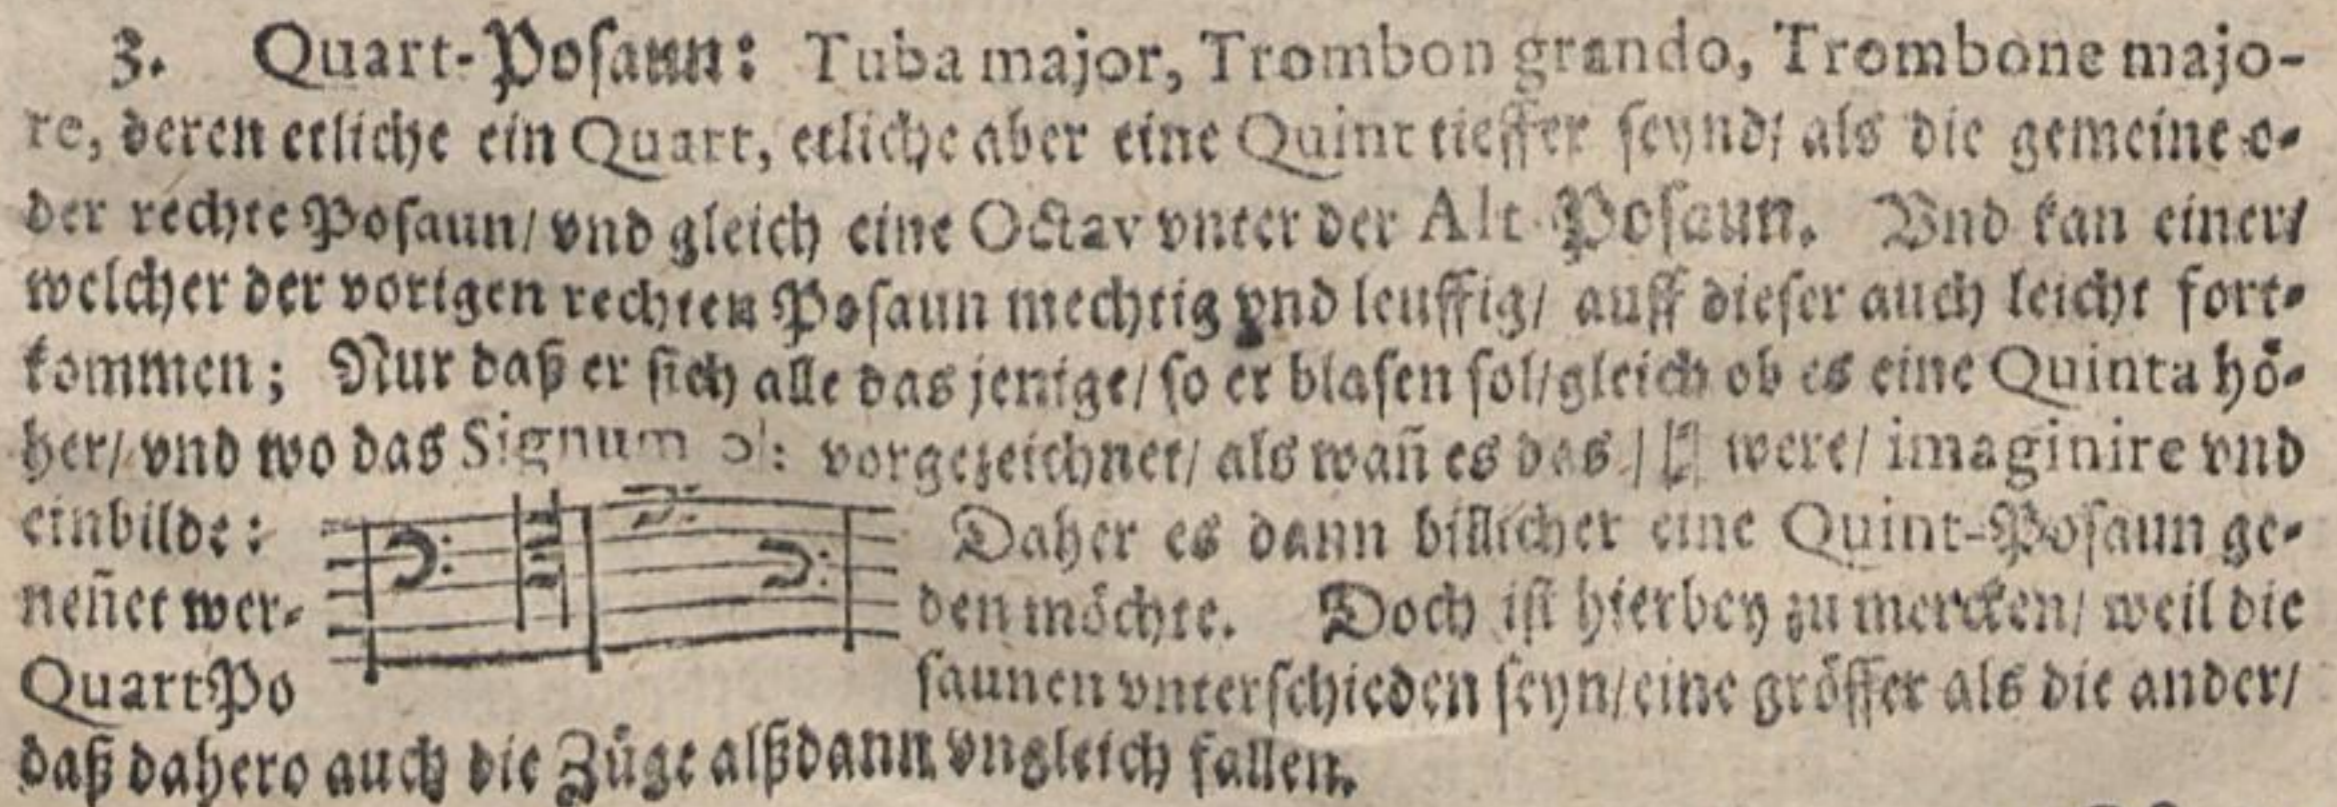 3. Quart-Poſaun: Tuba major, Trombon grando, Trombone majo-
re, deren etliche ein Quart, etliche aber eine Quint tieffer ſeynd; als die gemeine o-
der rechte Poſaun/ vnd gleich eine Octav vnter der Alt Poſaun. Vnd kan einer/
welcher der vorigen rechten Poſaun mechtig vnd leuffig/ auff dieſer auch leicht fort-
kommen; Nur daß er ſich alle das jenige/ ſo er blaſen ſol/ gleich ob es eine Quinta hö-
her/ vnd wo das Signum vorgezeichnet/ als wañ es das were/ imaginire vnd
einbilde: Daher es dann billicher eine Quint-Poſaun ge-
neñet wer- den möchte. Doch iſt hierbey zu mercken/ weil die
QuartPo ſaunen vnterſchieden ſeyn/ eine gröſſer als die ander/
daß dahero auch die Züge alßdann vngleich fallen.